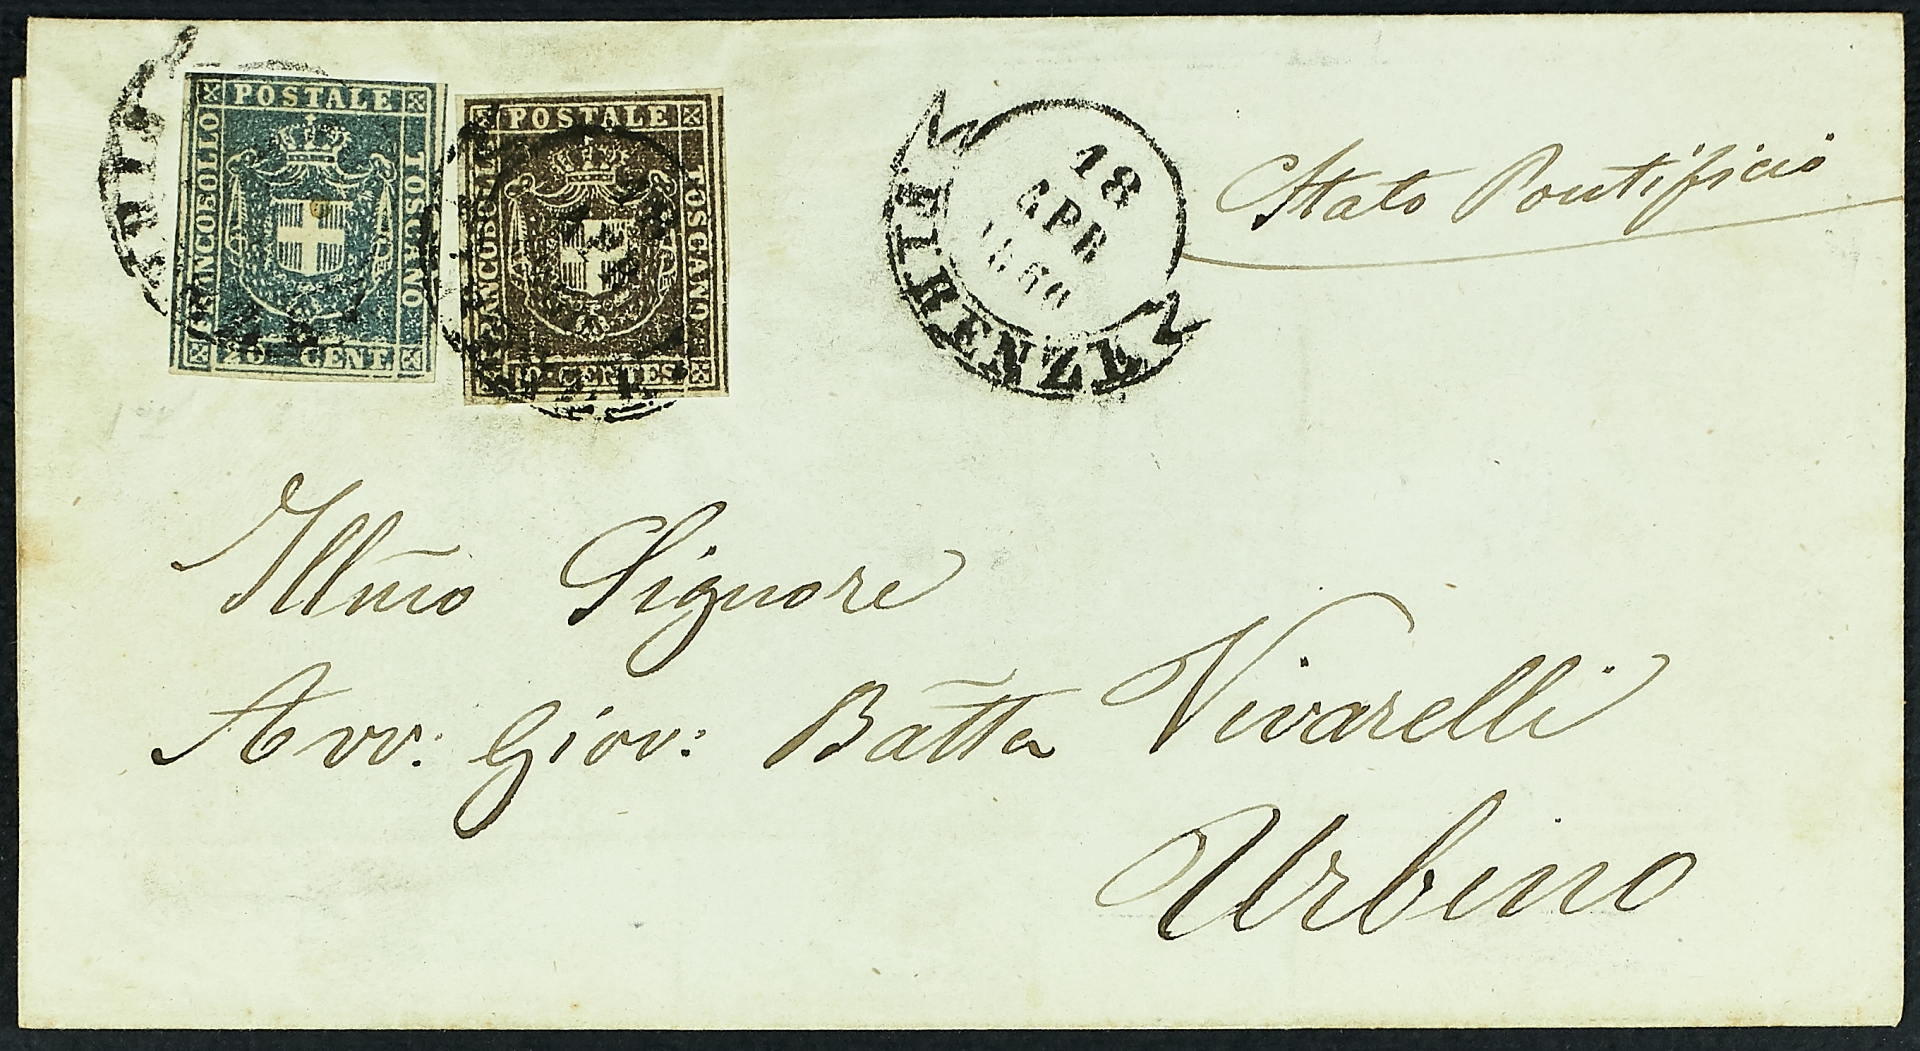 POSTALE
FRANCOBOLLO
TOSCANO
20 CENT
POSTALE
FRANCOBOLLO
TOSCANO
10 CENTES
18
APR
1860
FIRENZE
Stato Pontificio
Illm̃o Signore
Avv: Giov: Bat̃ta Vivarelli
Urbino